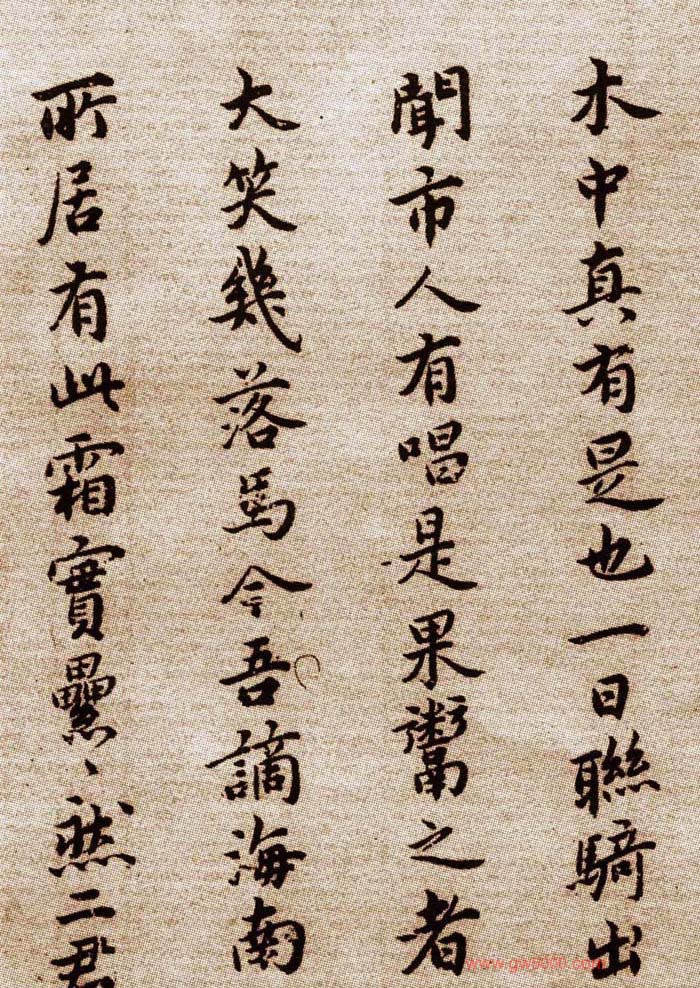 木中真有是也一日聯騎出
聞市人有唱是果鬻之者
大笑幾落馬今吾謫海南
所居有此霜實纍〻然二君
www.gw8000.com